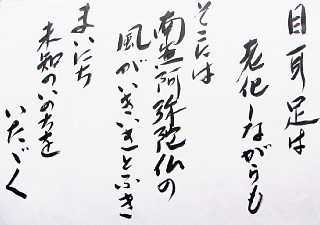 目耳足は
老化しながらも
そこには
南無阿弥陀仏の
風がいきいきとふき
まいにち
未知のいのちを
いただく